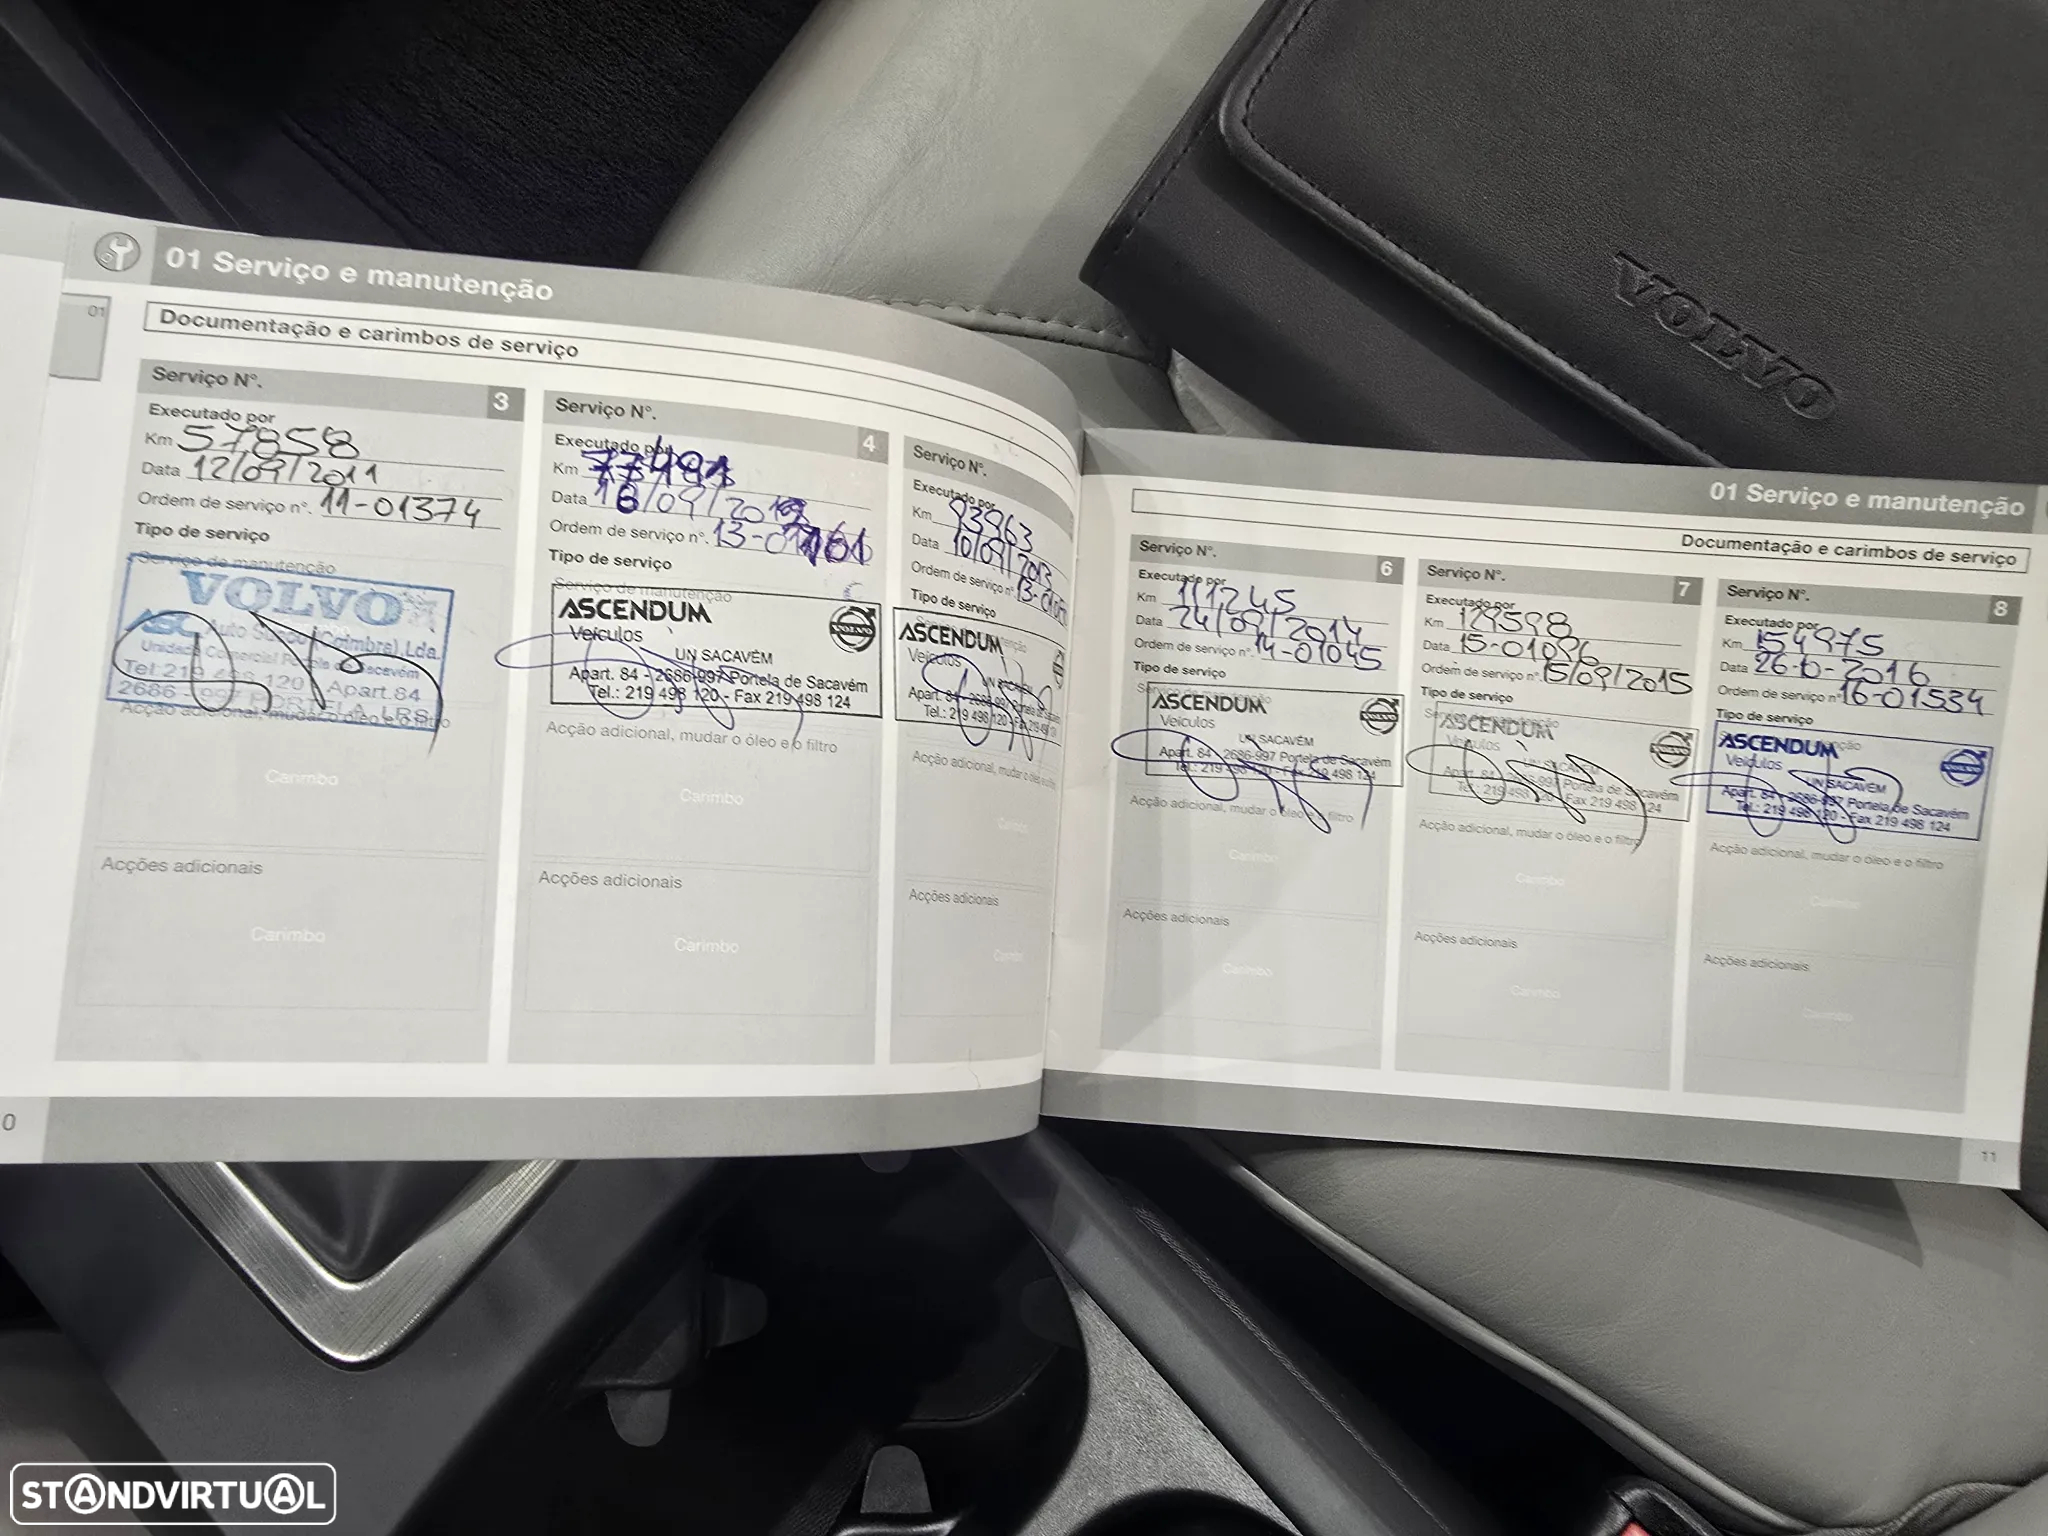 01 Serviço e manutenção
01
Documentação e carimbos de serviço
Serviço Nº. 3
Executado por
Km 57858
Data 12/09/2011
Ordem de serviço nº. 11-01374
Tipo de serviço
Serviço de manutenção
VOLVO
ASC Auto Sueco (Coimbra), Lda.
Unidade Comercial Portela de Sacavém
Tel: 219 498 120 Apart. 84
2686-997 PORTELA LRS
Acção adicional, mudar o óleo e o filtro
Carimbo
Acções adicionais
Carimbo
Serviço Nº. 4
Executado por
Km
Data 18/09/2012
Ordem de serviço nº.
Tipo de serviço
Serviço de manutenção
ASCENDUM
Veículos
VOLVO
UN SACAVÉM
Apart. 84 - 2686-997 Portela de Sacavém
Tel.: 219 498 120 - Fax 219 498 124
Acção adicional, mudar o óleo e o filtro
Carimbo
Acções adicionais
Carimbo
Serviço Nº.
Executado por
Km 93963
Data 10/09/2013
Ordem de serviço nº.
Tipo de serviço
ASCENDUM
Veículos
UN SACAVÉM
Apart. 84 - 2686-997 Portela de Sacavém
Tel.: 219 498 120 - Fax 219 49
Acção adicional, mudar o óleo e o filtro
Carimbo
Acções adicionais
Carimbo
0
01 Serviço e manutenção
Documentação e carimbos de serviço
Serviço Nº. 6
Executado por
Km 111245
Data 24/09/2014
Ordem de serviço nº. 14-01045
Tipo de serviço
Serviço de manutenção
ASCENDUM
Veículos
VOLVO
UN SACAVÉM
Apart. 84 - 2686-997 Portela de Sacavém
Tel.: 219 498 120 - Fax 219 498 124
Acção adicional, mudar o óleo e o filtro
Carimbo
Acções adicionais
Carimbo
Serviço Nº. 7
Executado por
Km 129598
Data 15-01096
Ordem de serviço nº. 15/09/2015
Tipo de serviço
Serviço de manutenção
ASCENDUM
Veículos
VOLVO
UN SACAVÉM
Apart. 84 - 2686-997 Portela de Sacavém
Tel.: 219 498 120 - Fax 219 498 124
Acção adicional, mudar o óleo e o filtro
Carimbo
Acções adicionais
Carimbo
Serviço Nº. 8
Executado por
Km 154975
Data 26-10-2016
Ordem de serviço nº 16-01534
Tipo de serviço
ASCENDUM
Veículos
VOLVO
UN SACAVÉM
Apart. 84 - 2686-997 Portela de Sacavém
Tel.: 219 498 120 - Fax 219 498 124
Acção adicional, mudar o óleo e o filtro
Carimbo
Acções adicionais
Carimbo
11
VOLVO
STANDVIRTUAL